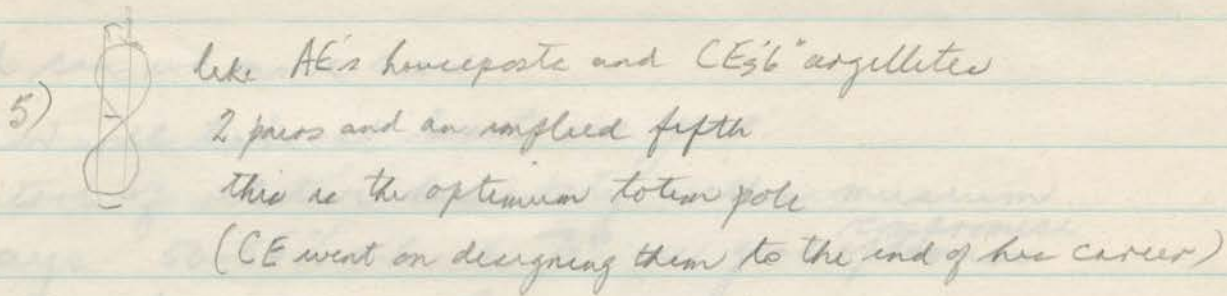 5) like AE's houseposts and CE's 6" argillites
2 pairs and an implied fifth
this is the optimum totem pole
(CE went on designing them to the end of his career)